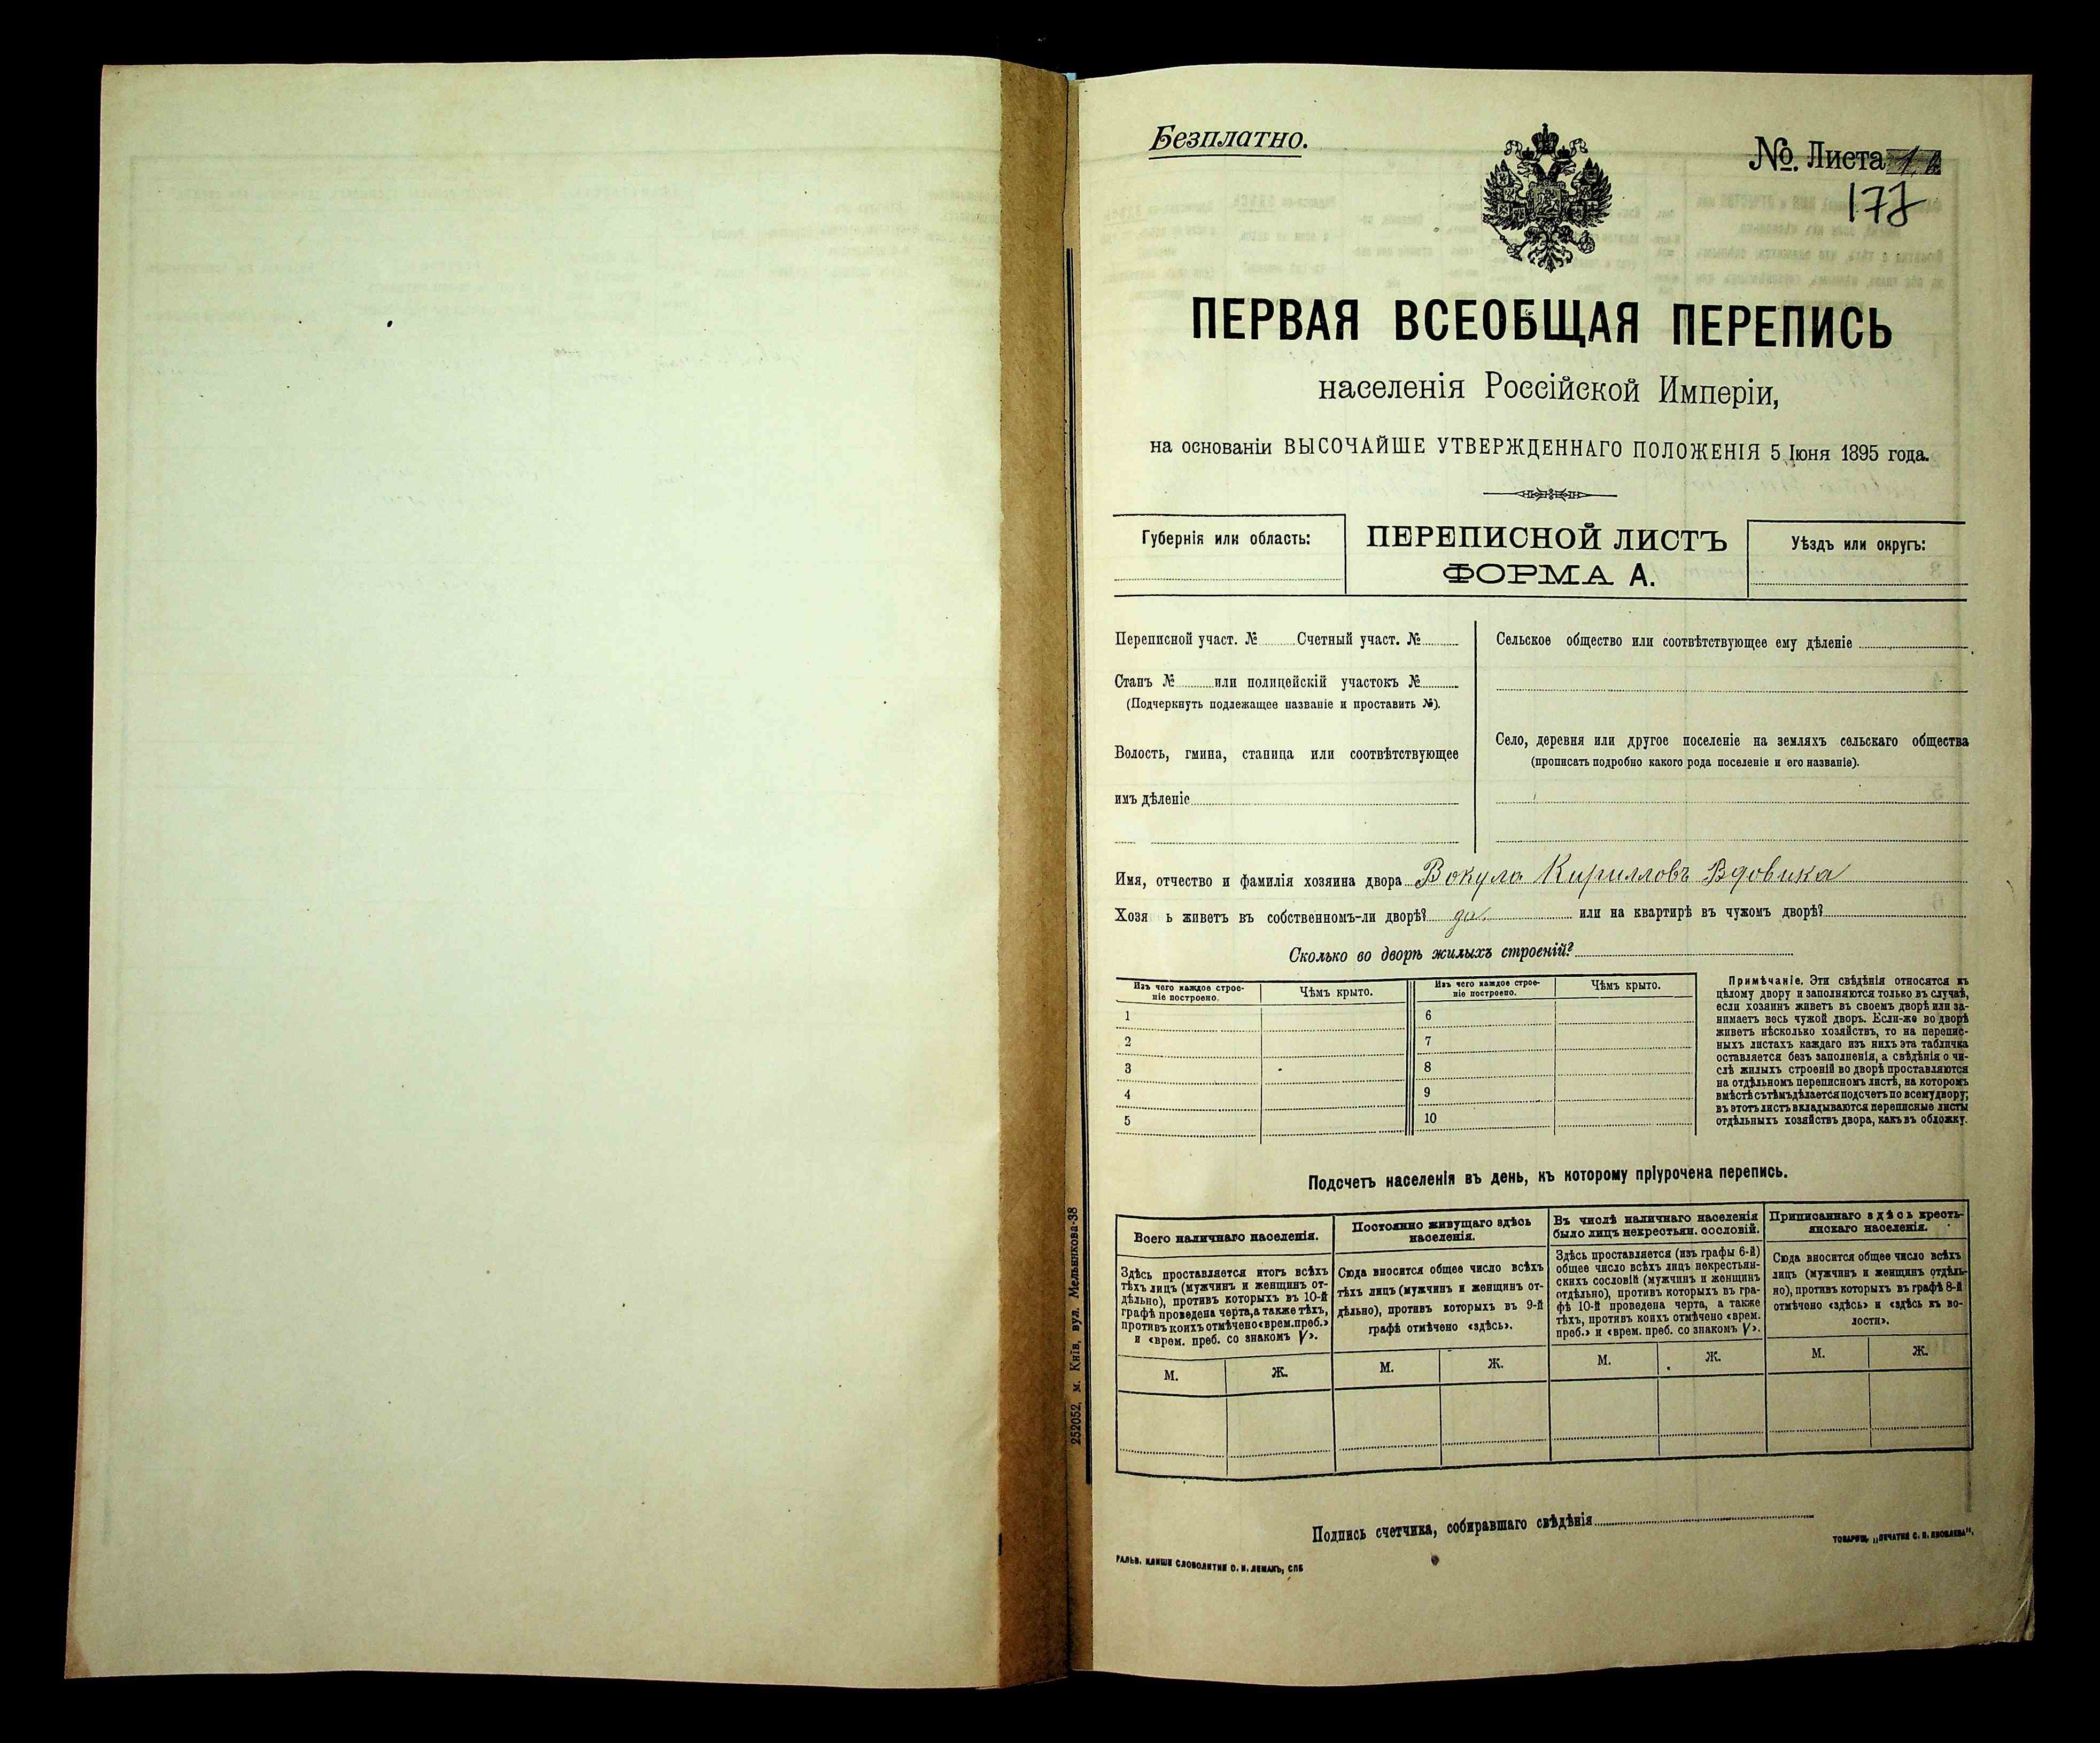 Безплатно.
№. Листа
177
ПЕРВАЯ ВСЕОБЩАЯ ПЕРЕПИСЬ
населенія Россійской Имперіи,
на основаніи ВЫСОЧАЙШЕ УТВЕРЖДЕННАГО ПОЛОЖЕНІЯ 5 Іюня 1895 года.
Губернія или область:
ПЕРЕПИСНОЙ ЛИСТЪ
ФОРМА А.
Уѣздъ или округъ:
Переписной участ. № Счетный участ. №
Станъ № или полицейскій участокъ №
(Подчеркнуть подлежащее названіе и проставить №).
Волость, гмина, станица или соотвѣтствующее
имъ дѣленіе
Сельское общество или соотвѣтствующее ему дѣленіе
Село, деревня или другое поселеніе на земляхъ сельскаго общества
(прописать подробно какого рода поселеніе и его названіе).
Имя, отчество и фамилія хозяина двора Вокула Кирилловъ Вдовика
Хозя ь живетъ въ собственномъ-ли дворѣ? да. или на квартирѣ въ чужомъ дворѣ?
Сколько во дворѣ жилыхъ строеній?
Изъ чего каждое строе-
ніе построено.
Чѣмъ крыто.
Изъ чего каждое строе-
ніе построено.
Чѣмъ крыто.
1 6
2 7
3 8
4 9
5 10
Примѣчаніе. Эти свѣдѣнія относятся къ
цѣлому двору и заполняются только въ случаѣ,
если хозяинъ живетъ въ своемъ дворѣ или за-
нимаетъ весь чужой дворъ. Если-же во дворѣ
живетъ нѣсколько хозяйствъ, то на перепис-
ныхъ листахъ каждаго изъ нихъ эта табличка
оставляется безъ заполненія, а свѣдѣнія о чи-
слѣ жилыхъ строеній во дворѣ проставляются
на отдѣльномъ переписномъ листѣ, на которомъ
вмѣстѣ съ тѣмъ дѣлается подсчетъ по всему двору;
въ этотъ листъ вкладываются переписные листы
отдѣльныхъ хозяйствъ двора, какъ въ обложку.
Подсчетъ населенія въ день, къ которому пріурочена перепись.
Всего наличнаго населенія.
Здѣсь проставляется итогъ всѣхъ
тѣхъ лицъ (мужчинъ и женщинъ от-
дѣльно), противъ которыхъ въ 10-й
графѣ проведена черта, а также тѣхъ,
противъ коихъ отмѣчено «врем. преб.»
и «врем. преб. со знакомъ V».
М. Ж.
Постоянно живущаго здѣсь
населенія.
Сюда вносится общее число всѣхъ
тѣхъ лицъ (мужчинъ и женщинъ от-
дѣльно), противъ которыхъ въ 9-й
графѣ отмѣчено «здѣсь».
М. Ж.
Въ числѣ наличнаго населенія
было лицъ некрестьян. сословій.
Здѣсь проставляется (изъ графы 6-й)
общее число всѣхъ лицъ некрестьян-
скихъ сословій (мужчинъ и женщинъ
отдѣльно), противъ которыхъ въ гра-
фѣ 10-й проведена черта, а также
тѣхъ, противъ коихъ отмѣчено «врем.
преб.» и «врем. преб. со знакомъ V».
М. Ж.
Приписаннаго здѣсь кресть-
янскаго населенія.
Сюда вносится общее число всѣхъ
лицъ (мужчинъ и женщинъ отдѣль-
но), противъ которыхъ въ графѣ 8-й
отмѣчено «здѣсь» и «здѣсь въ во-
лости».
М. Ж.
Подпись счетчика, собиравшаго свѣдѣнія
ГАЛЬВ. КЛИШЕ СЛОВОЛИТНИ О. И. ЛЕМАНЪ, СПБ
ТОВАРИЩ. „ПЕЧАТНЯ С. П. ЯКОВЛЕВА".
252052, м. Київ, вул. Мельникова-38